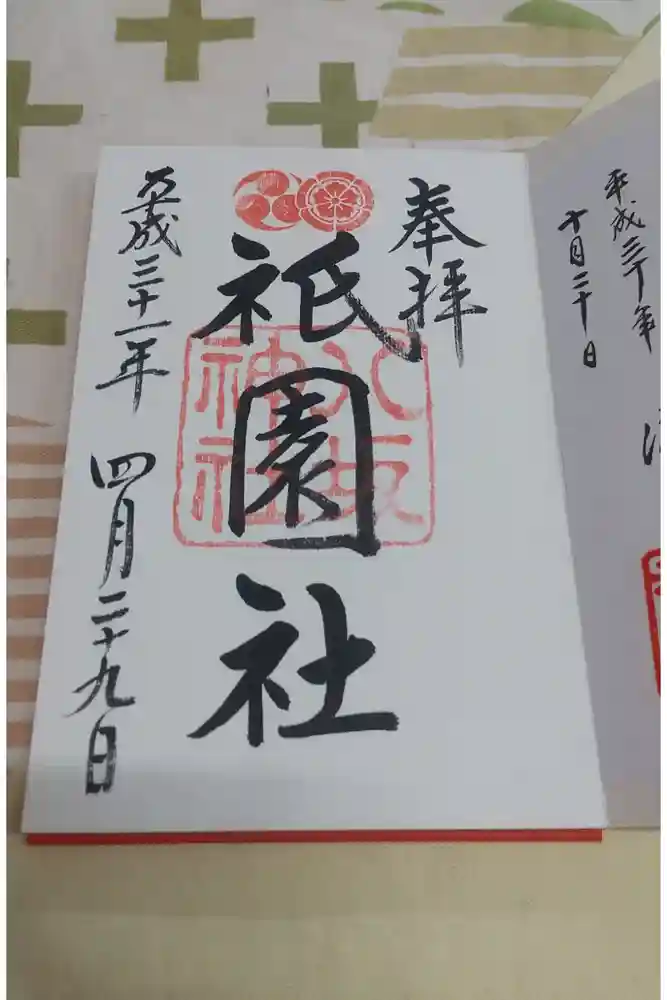 平成三十年
十月二十日
奉拝
祇園社
八坂
神社
平成三十一年 四月二十九日